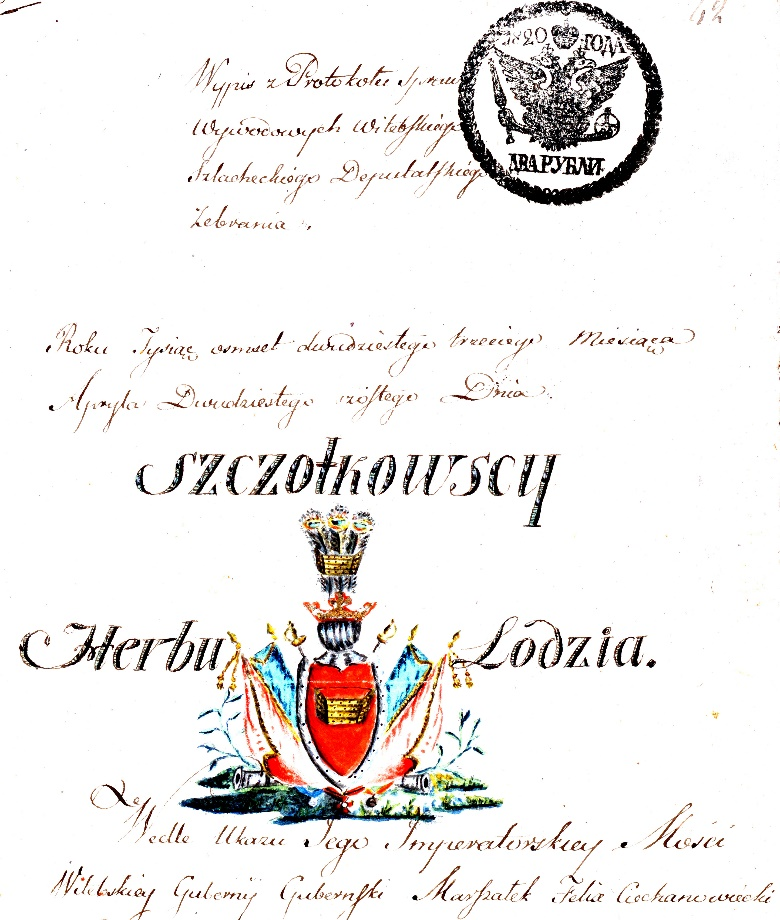 42
1820 ГОДА
ДВА РУБЛИ
Wypis z Protokołu Spraw
Wywodowych Witebskiego
Szlacheckiego Deputatskiego
Zebrania.
Roku Tysiąc osmset dwudziestego trzeciego Miesiąca
Apryla Dwudziestego szóstego Dnia.
Szczołkowscy
Herbu Łodzia.
Wedle Ukazu Jego Imperatorskiey Mości
Witebskiey Gubernij Gubernski Marszałek Felix Ciechanowiecki